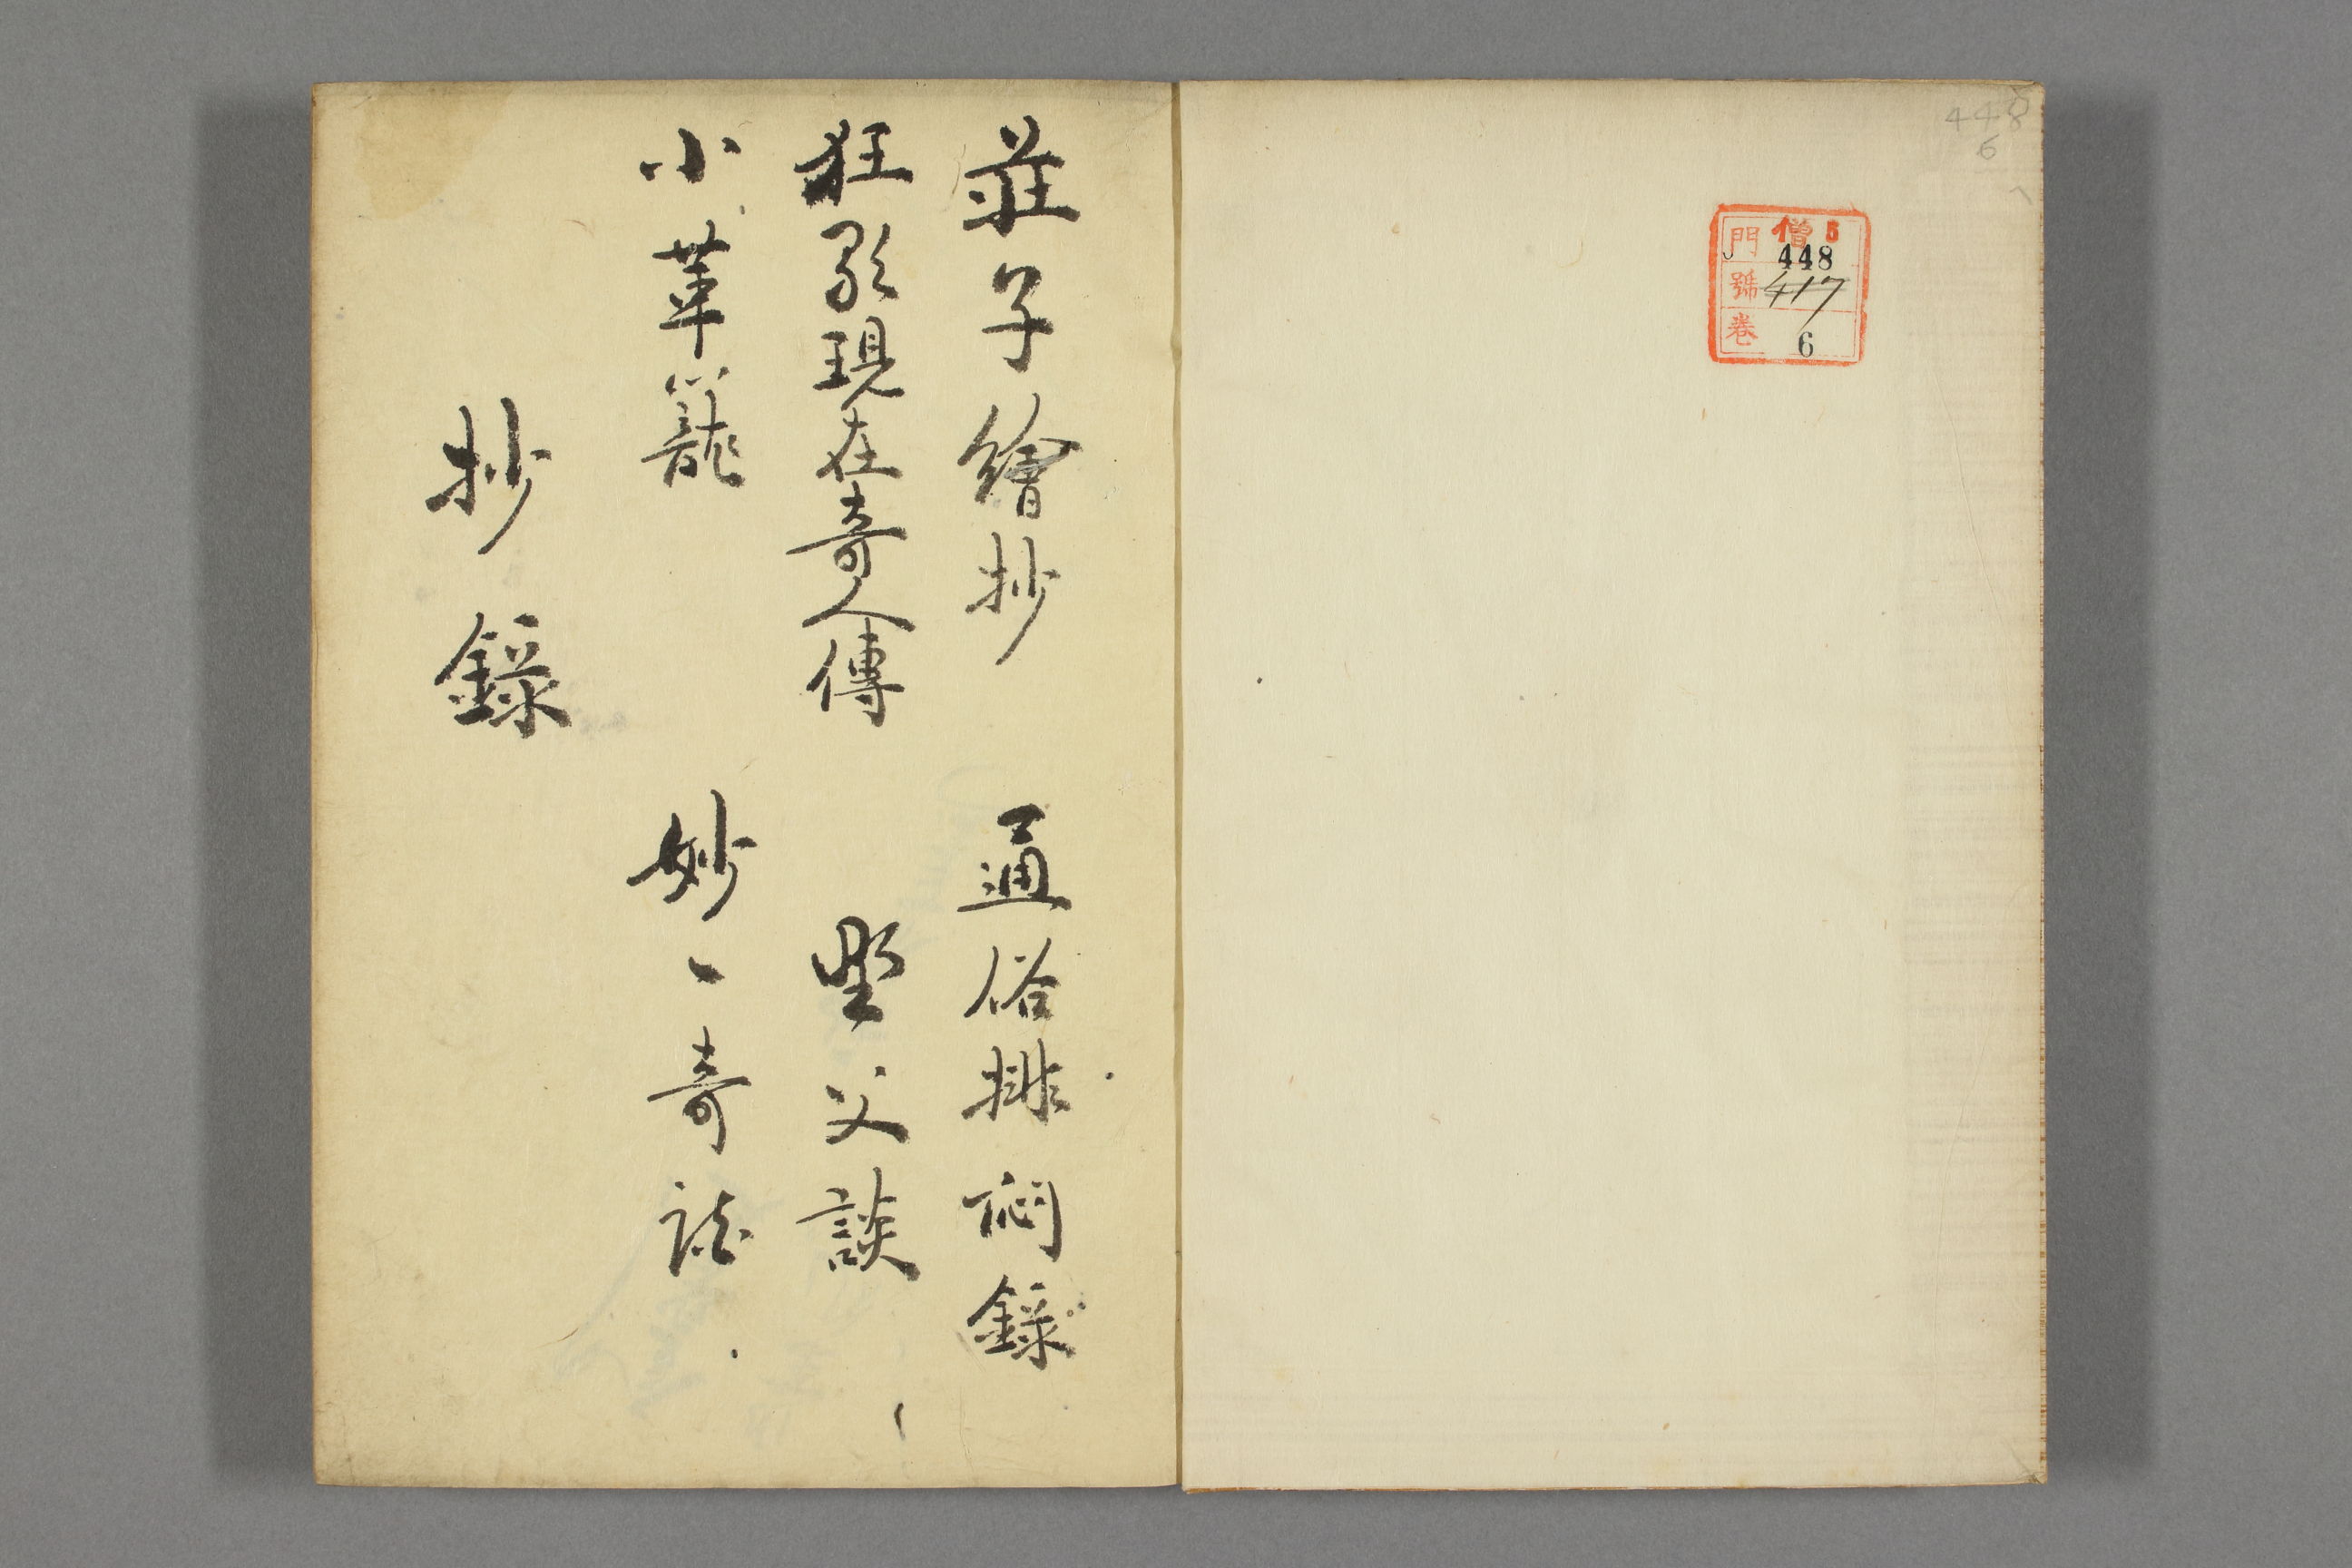 448
6
門 僧 5
448
號 417
卷 6
莊子繪抄 通俗排悶錄
狂歌現在奇人傳 野父談
小革籠 妙々奇談
抄錄